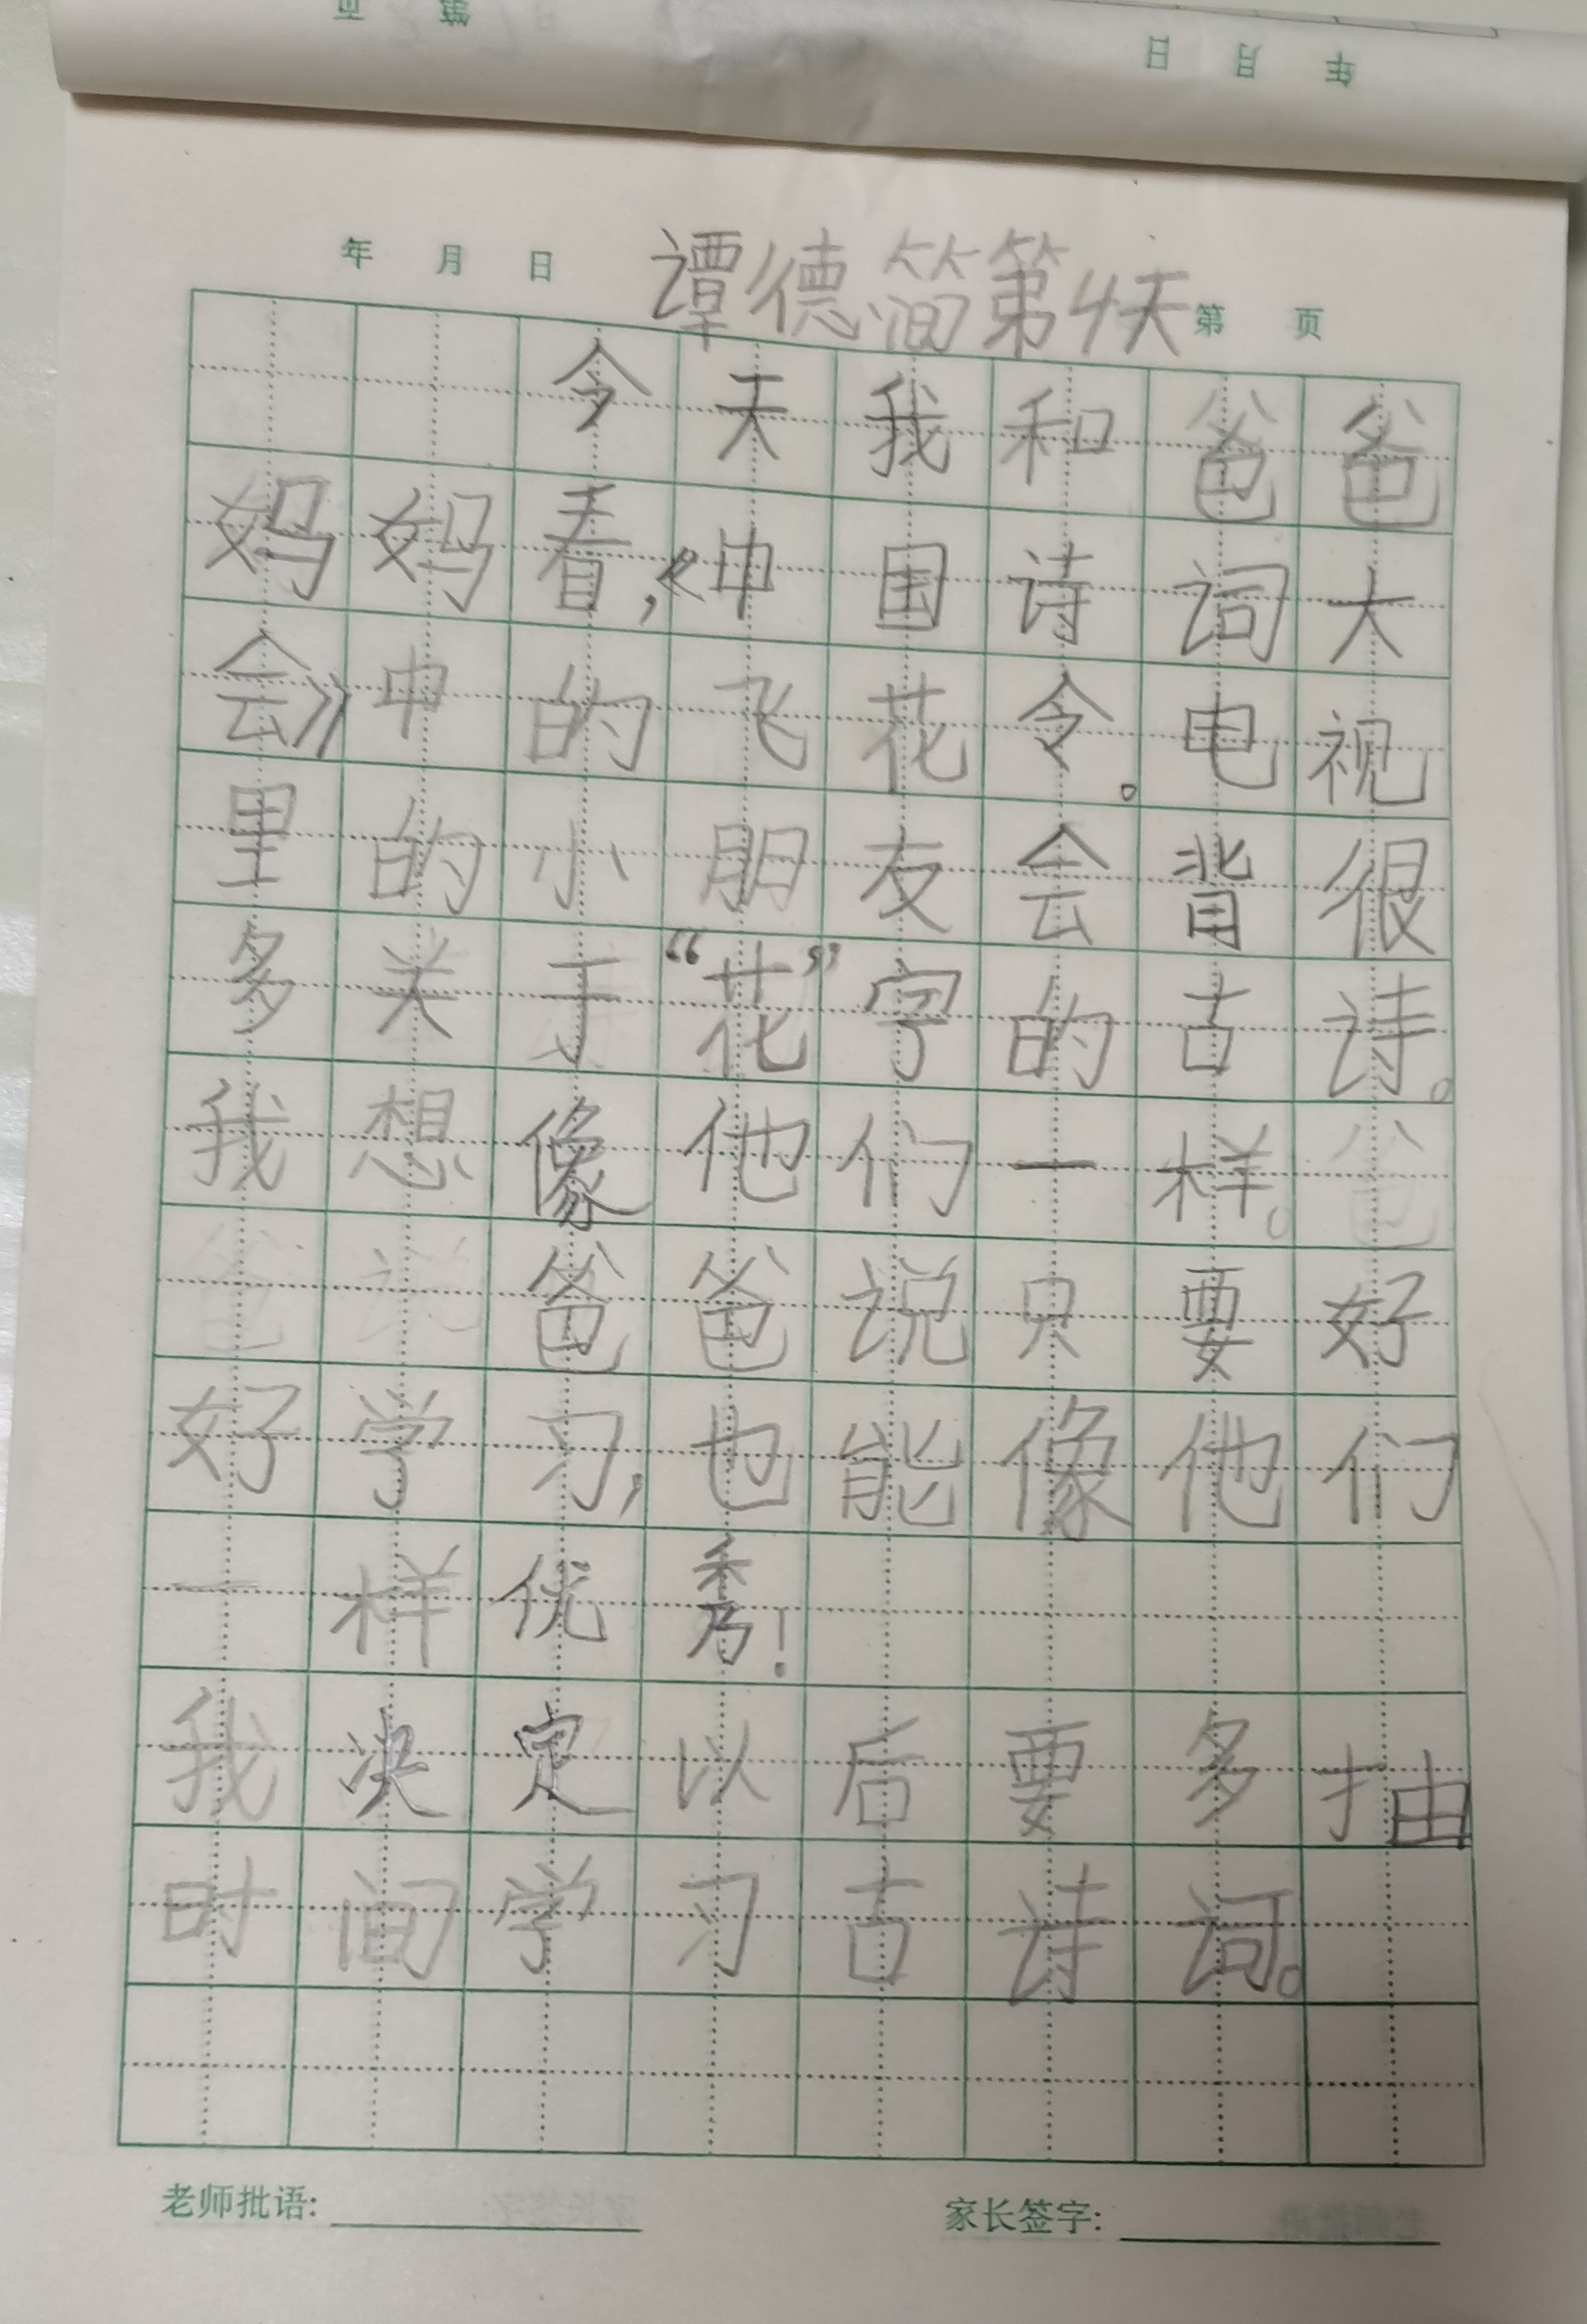 年 月 日 谭德简第4天 第 页
令天我和爸爸
妈妈看,《中国诗词大
会》中的飞花令。电视
里的小朋友会背很
多关于“花”字的古诗。
我想像他们一样。
爸爸说只要好
好学习,也能像他们
一样优秀!
我决定以后要多抽
时间学习古诗词。
老师批语: 家长签字: